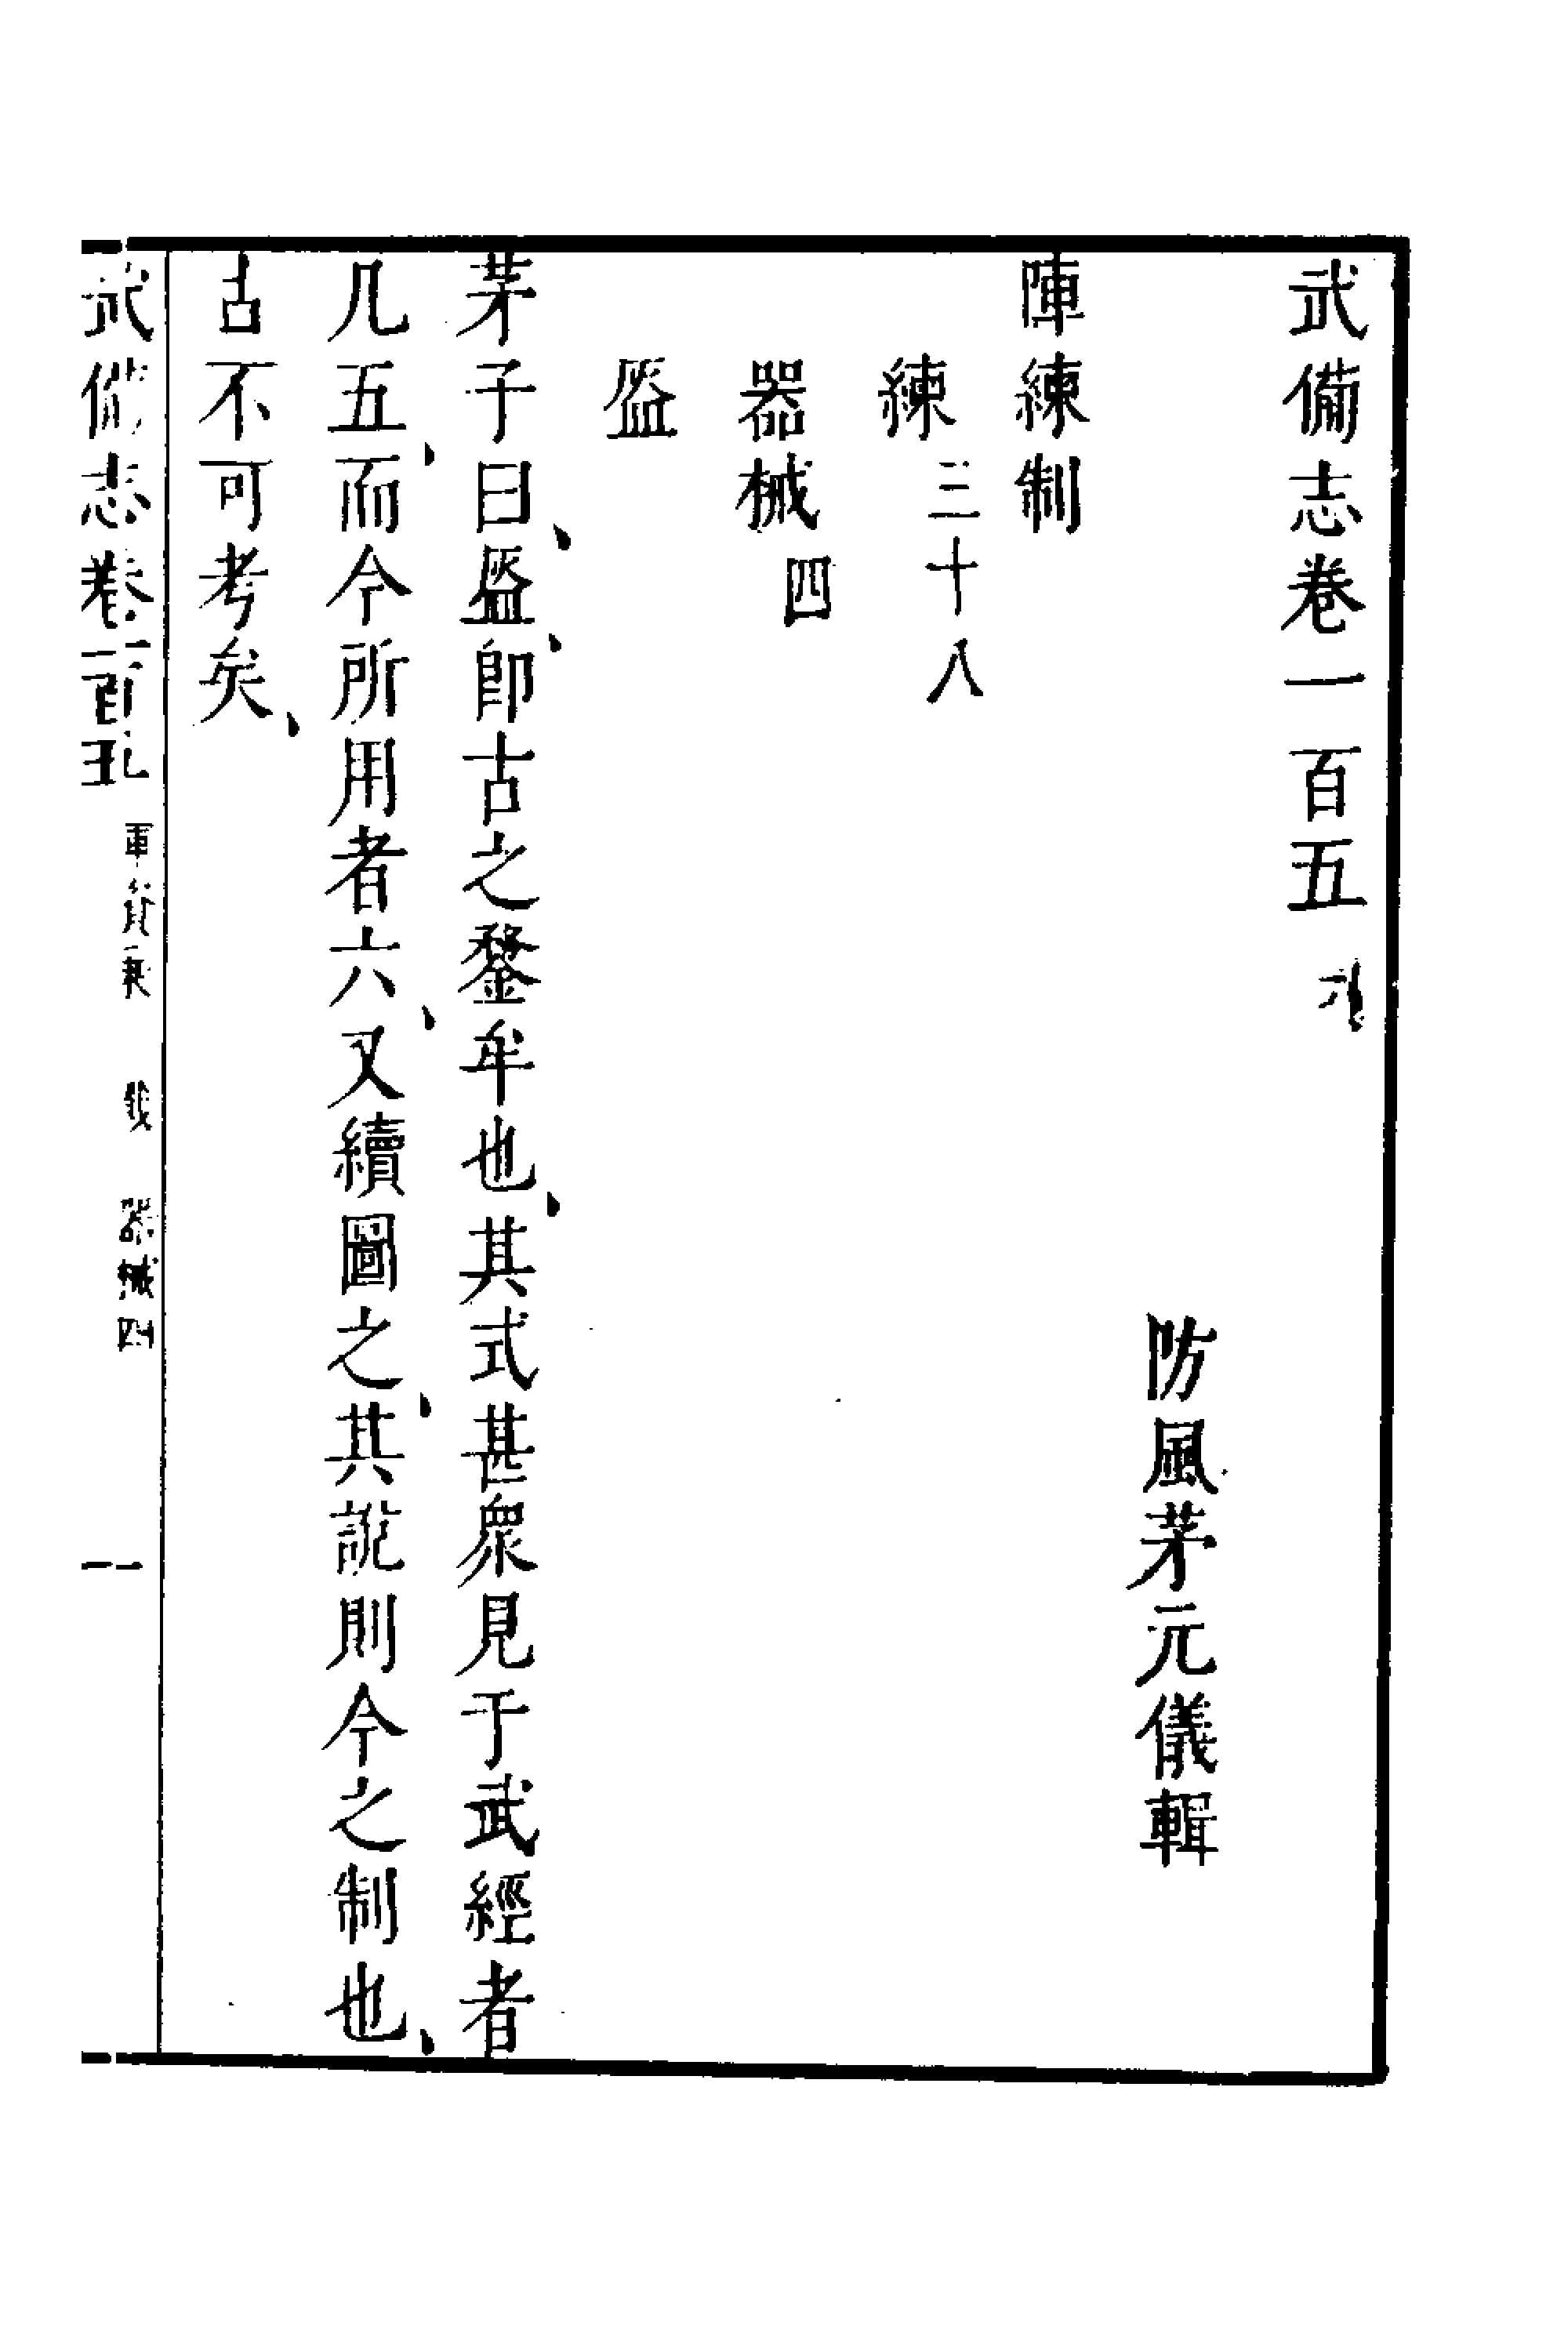 武備志卷一百五
防風茅元儀輯
陣練制
練三十八
器械四
盔
茅子曰、盔、卽古之鍪牟也、其式甚衆見于武經者
凡五、而今所用者六、又續圖之、其說則今之制也、
古不可考矣、
武備志卷一百五 器械四 一